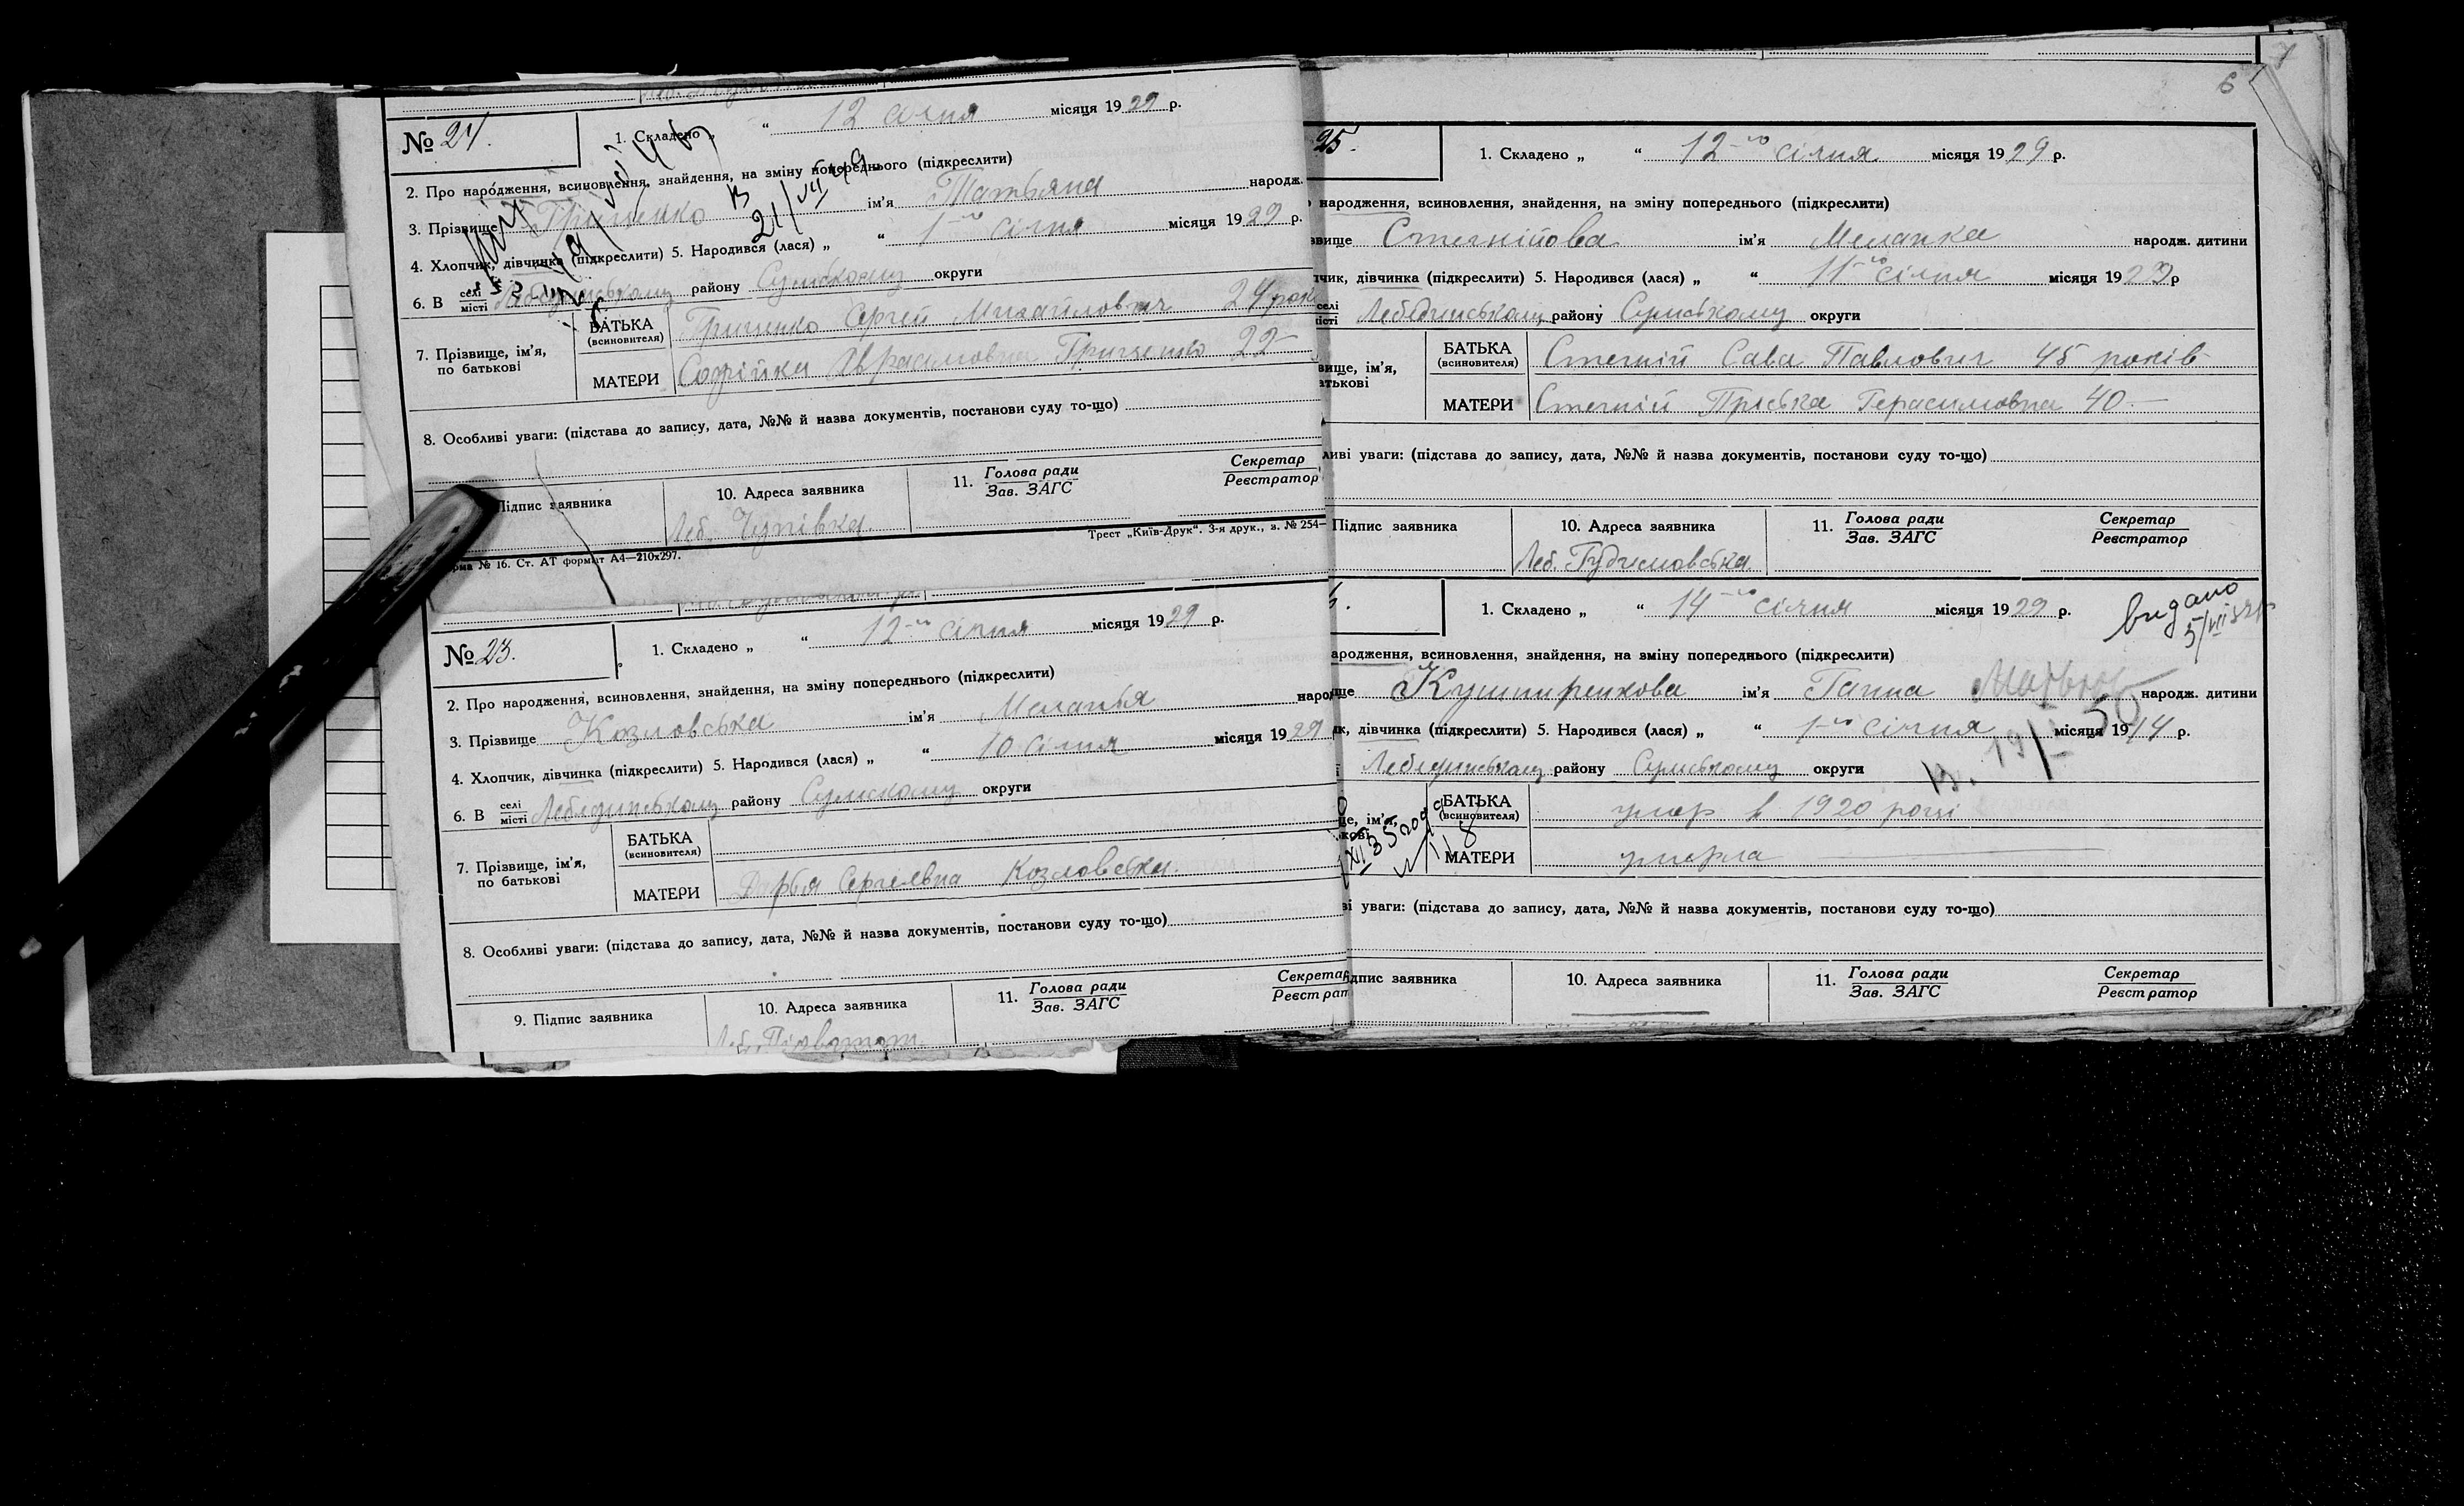 № 24.
1. Складено „ “ 12 січня місяця 1929 р.
2. Про народження, всиновлення, знайдення, на зміну попереднього (підкреслити)
3. Прізвище Грищенко ім'я Татьяна народж.
4. Хлопчик, дівчинка (підкреслити) 5. Народився (лася) „ “ 1-го січня місяця 1929 р.
6. В селі місті Лебединському району Сумському округи
7. Прізвище, ім'я, по батькові
БАТЬКА (всиновителя) Грищенко Сергей Михайлович 24 рок
МАТЕРИ Софійка Грищенко 22
8. Особливі уваги: (підстава до запису, дата, №№ й назва документів, постанови суду то-що)
Підпис заявника
10. Адреса заявника
Леб.
11. Голова ради
Зав. ЗАГС
Секретар
Реєстратор
Трест „Київ-Друк“. 3-я друк., з. № 254—
рма № 16. Ст. АТ формат А4—210х297.
№ 23.
1. Складено „ “ 12-го січня місяця 1929 р.
2. Про народження, всиновлення, знайдення, на зміну попереднього (підкреслити)
3. Прізвище Козловська ім'я Меланья народ
4. Хлопчик, дівчинка (підкреслити) 5. Народився (лася) „ “ 10 січня місяця 1929
6. В селі місті Лебединському району Сумському округи
7. Прізвище, ім'я, по батькові
БАТЬКА (всиновителя)
МАТЕРИ Дарья Сергіевна Козловська.
8. Особливі уваги: (підстава до запису, дата, №№ й назва документів, постанови суду то-що)
9. Підпис заявника
10. Адреса заявника
Леб.
11. Голова ради
Зав. ЗАГС
Секретар
Реєстрат
6
7
25.
1. Складено „ “ 12-го січня місяця 1929 р.
народження, всиновлення, знайдення, на зміну попереднього (підкреслити)
вище Стегнійова ім'я Меланка народж. дитини
чик, дівчинка (підкреслити) 5. Народився (лася) „ “ 11-го січня місяця 1929 р
селі істі Лебединському району Сумському округи
вище, ім'я, атькові
БАТЬКА (всиновителя) Стегній Сава Павлович 45 років
МАТЕРИ Стегній Пріська Герасимовна 40 —
ливі уваги: (підстава до запису, дата, №№ й назва документів, постанови суду то-що)
Підпис заявника
10. Адреса заявника
Леб. Гудимовська
11. Голова ради
Зав. ЗАГС
Секретар
Реєстратор
1. Складено „ “ 14-го січня місяця 1929 р.
видано
5/VII
ародження, всиновлення, знайдення, на зміну попереднього (підкреслити)
ще Кушниренкова ім'я Ганна народж. дитини
як, дівчинка (підкреслити) 5. Народився (лася) „ “ 1-го січня місяця 1914 р.
Лебединському району Сумському округи
19/I 50
ще, ім'я, кові
БАТЬКА (всиновителя) умер в 1920 році
МАТЕРИ умерла
ві уваги: (підстава до запису, дата, №№ й назва документів, постанови суду то-що)
ідпис заявника
10. Адреса заявника
11. Голова ради
Зав. ЗАГС
Секретар
Реєстратор